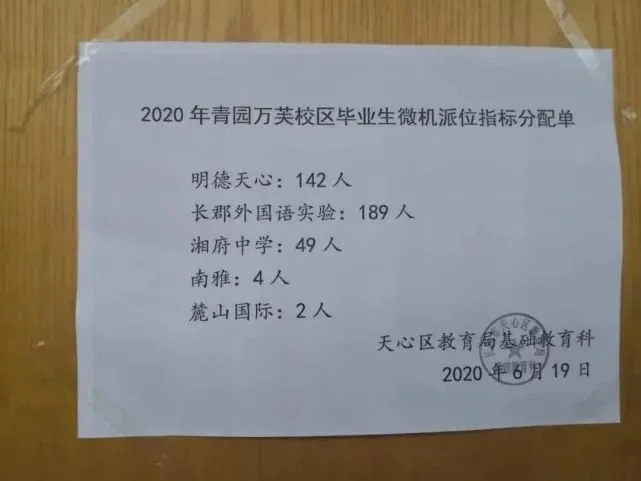 2020年青园万芙校区毕业生微机派位指标分配单
明德天心：142人
长郡外国语实验：189人
湘府中学：49人
南雅：4人
麓山国际：2人
天心区教育局基础教育科
2020年6月19日